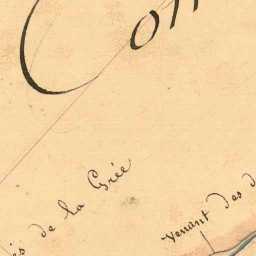 Con
is de la Grée
Venant des d